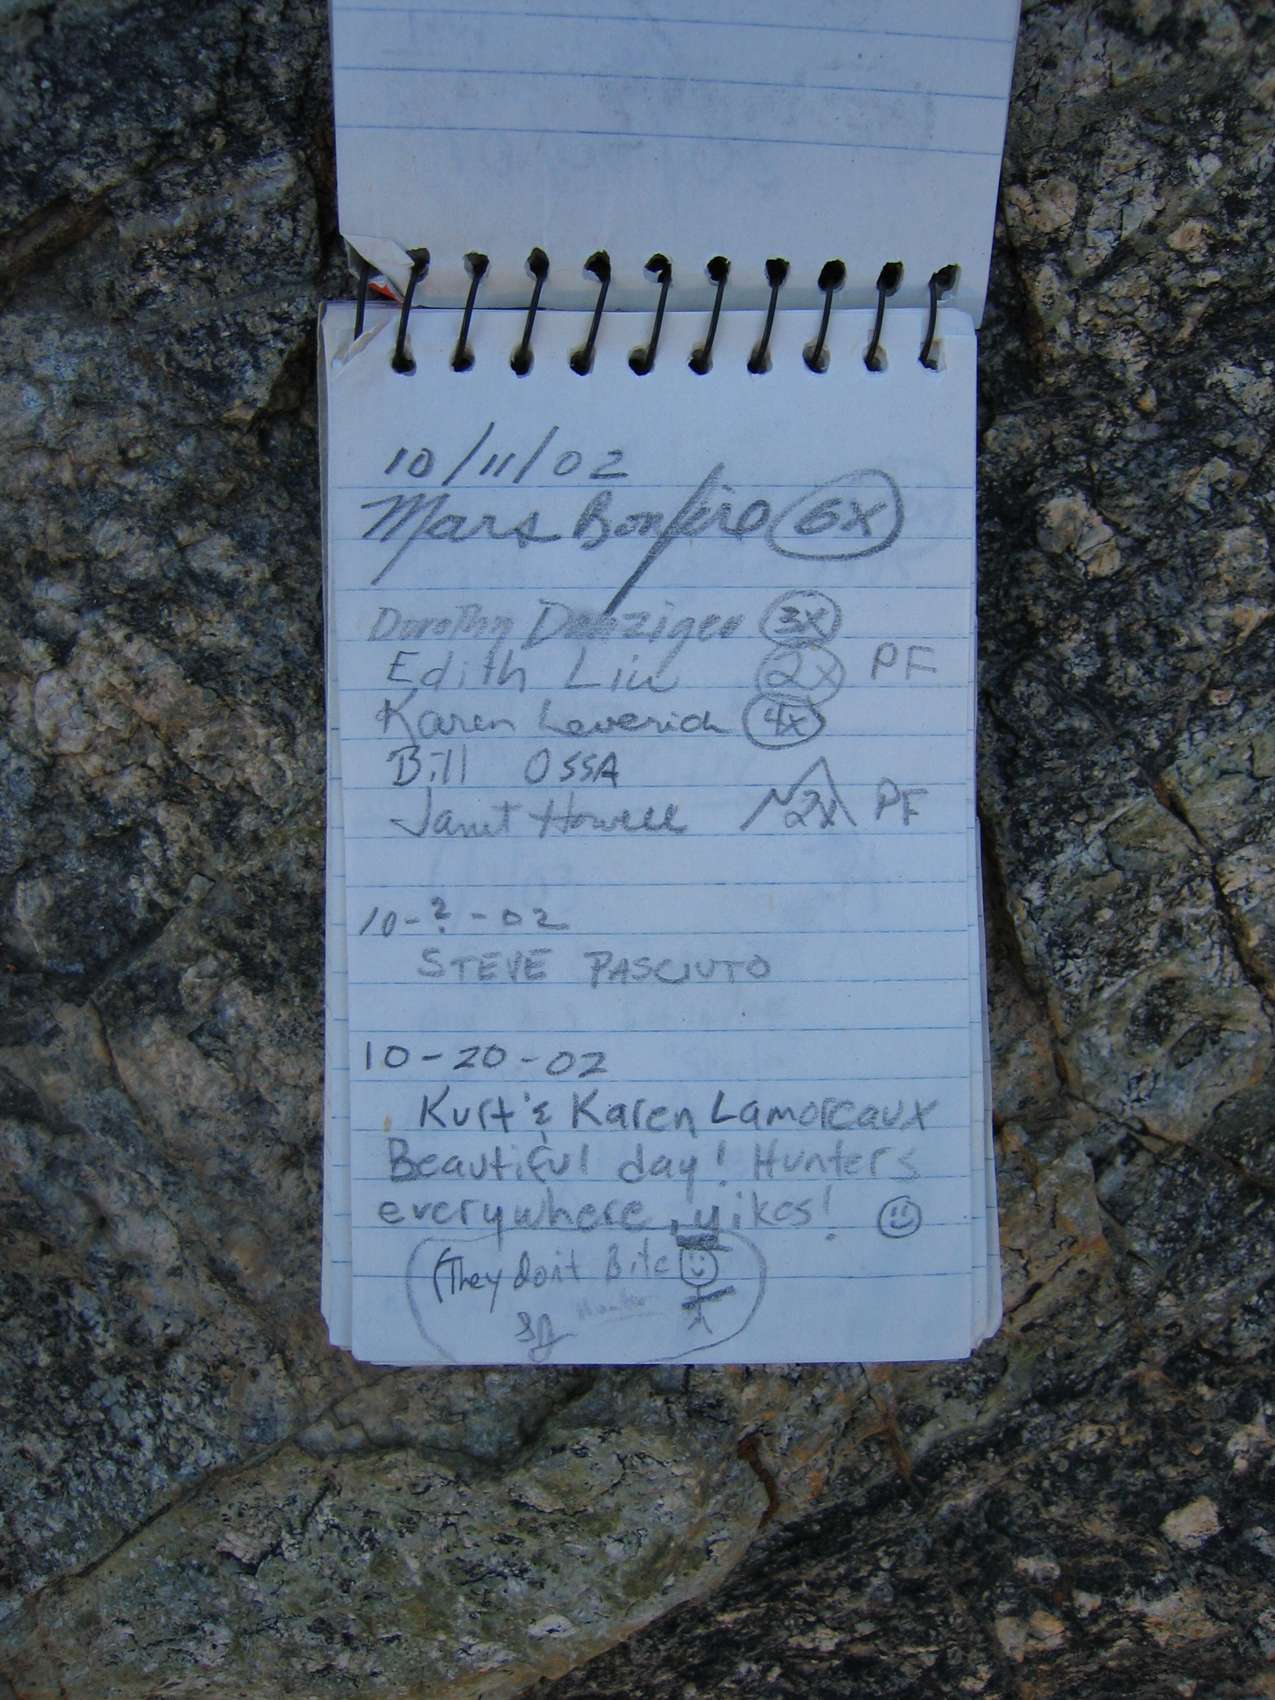 10/11/02
Mars Bonfire 6x
Dorothy Danziger 3x
Edith Liu 2x PF
Karen Leverich 4x
Bill OSSA
Janet Howell 2x PF
10-?-02
STEVE PASCIUTO
10-20-02
Kurt & Karen Lamoreaux
Beautiful day! Hunters
everywhere, yikes!
(They don't Bite
Hunter